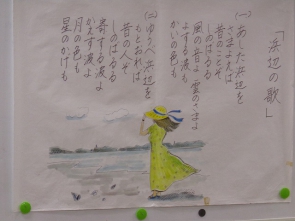 「浜辺の歌」
(一)あした浜辺を
さまよえば
昔のことぞ
しのばるる
風の音よ雲のさまよ
よする波も
かいの色も
(二)ゆうべ浜辺を
もとおれば
昔の人ぞ
しのばるる
寄する波よ
かえす波よ
月の色も
星のかげも